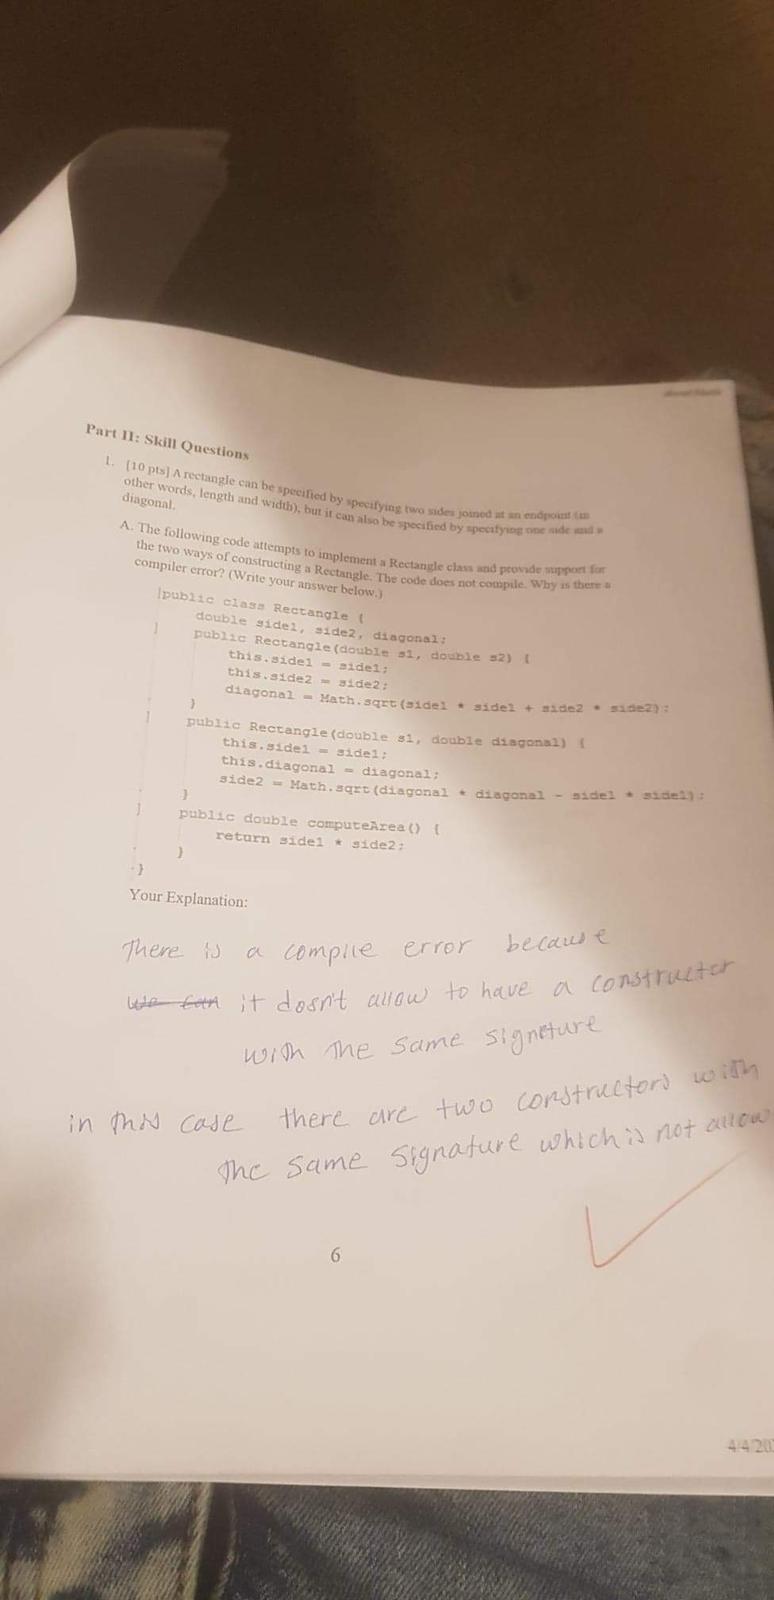 Part II: Skill Questions
1. [10 pts] A rectangle can be specified by specifying two sides joined at an endpoint (in
other words, length and width), but it can also be specified by specifying one side and a
diagonal.
A. The following code attempts to implement a Rectangle class and provide support for
the two ways of constructing a Rectangle. The code does not compile. Why is there a
compiler error? (Write your answer below.)
public class Rectangle {
double side1, side2, diagonal;
public Rectangle(double s1, double s2) {
this.side1 = side1;
this.side2 = side2;
diagonal = Math.sqrt(side1 * side1 + side2 * side2);
}
public Rectangle(double s1, double diagonal) {
this.side1 = side1;
this.diagonal = diagonal;
side2 = Math.sqrt(diagonal * diagonal - side1 * side1);
}
public double computeArea() {
return side1 * side2;
}
}
Your Explanation:
There is a compile error because
we can it dosn't allow to have a constructor
with the same signeture
in this case there are two constructors with
the same signature which is not allow
6
4/4/20